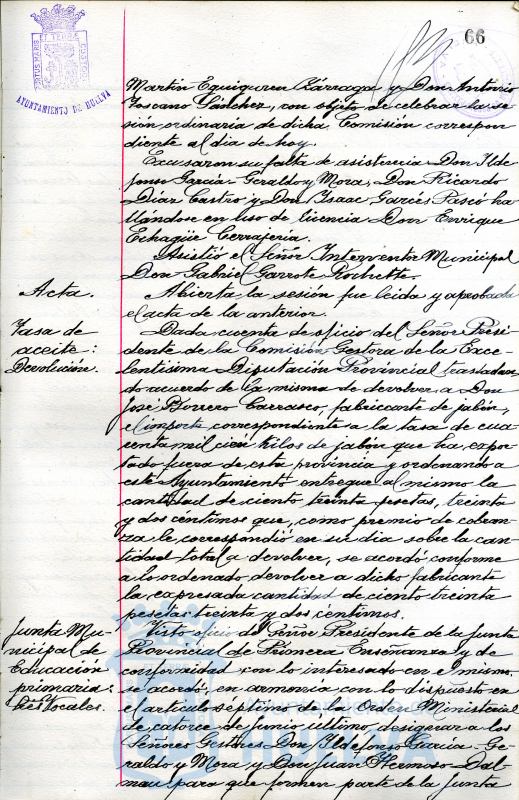 66
AYUNTAMIENTO DE HUELVA
Martín Equiguren Zárraga y Don Antonio
Toscano Sánchez, con objeto de celebrar la se
sión ordinaria de dicha Comisión correspon
diente al día de hoy.
Excusaron su falta de asistencia Don Ilde
fonso García-Geraldo y Mora, Don Ricardo
Díaz Castro y Don Isaac Garcés Pascó ha
llándose en uso de licencia Don Enrique
Echagüe Cerrajería.
Asistió el Señor Interventor Municipal
Don Gabriel Garrote
Acta.
Abierta la sesión fue leida y aprobada
el acta de la anterior.
Tasa de
aceite:
Devolución.
Dada cuenta de oficio del Señor Presi
dente de la Comisión Gestora de la Exce
lentísima Diputación Provincial trasladan
do acuerdo de la misma de devolver a Don
José Borrero Carrasco, fabricante de jabón,
el importe correspondiente a la tasa de cua
renta mil cien kilos de jabón que ha expor
tado fuera de esta provincia y ordenando a
este Ayuntamiento entregue al mismo la
cantidad de ciento treinta pesetas, treinta
y dos céntimos que, como premio de cobran
za le correspondió en su día sobre la can
tidad total a devolver, se acordó conforme
a lo ordenado, devolver a dicho fabricante
la expresada cantidad de ciento treinta
pesetas treinta y dos céntimos.
Junta Mu-
nicipal de
Educación
primaria:
Visto oficio del Señor Presidente de la Junta
Provincial de Primera Enseñanza y de
conformidad con lo interesado en el mismo
se acordó, en armonía con lo dispuesto en
el artículo séptimo de la Orden Ministerial
de catorce de Junio último designar a los
Señores Gestores Don Ildefonso García-Ge-
raldo y Mora y Don Juan Hermoso Dal-
mau para que formen parte de la Junta